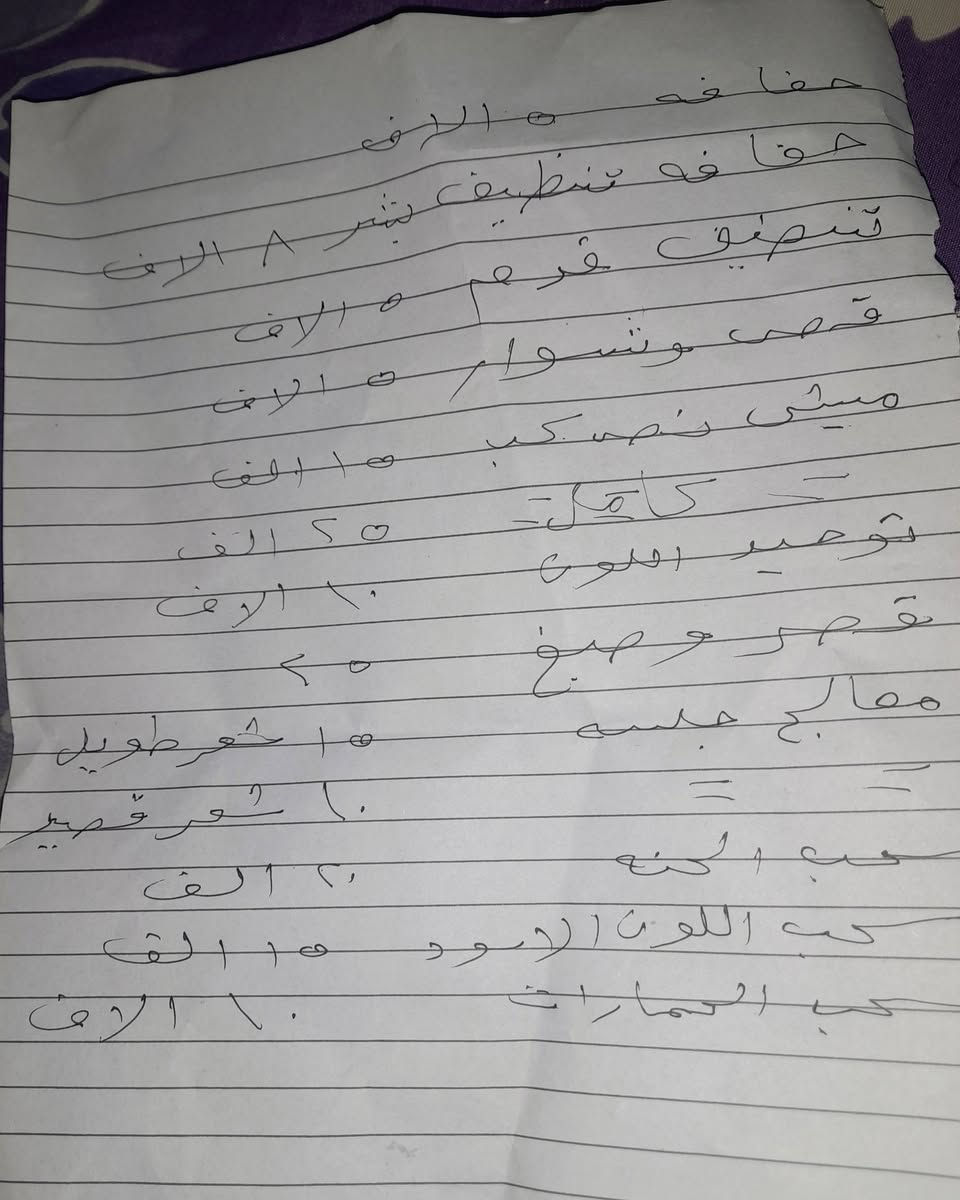 حفافه ٥ الاف
حفافه تنظيف بشر ٨ الاف
تنصيف قرهم ٥ الاف
قص وشوار ٥ الاف
ميش نص كب ١٥ الف
= كامل = ٢٥ الف
توحيد اللون ١٠ الاف
قصر وصبغ ٢٥
معالج جلسه ١٥ شعر طويل
= = ١٠ شعر قصير
سحب الحنه ٢٠ الف
سحب اللون الاسود ١٥ الف
سحب الحمارات ١٠ الاف